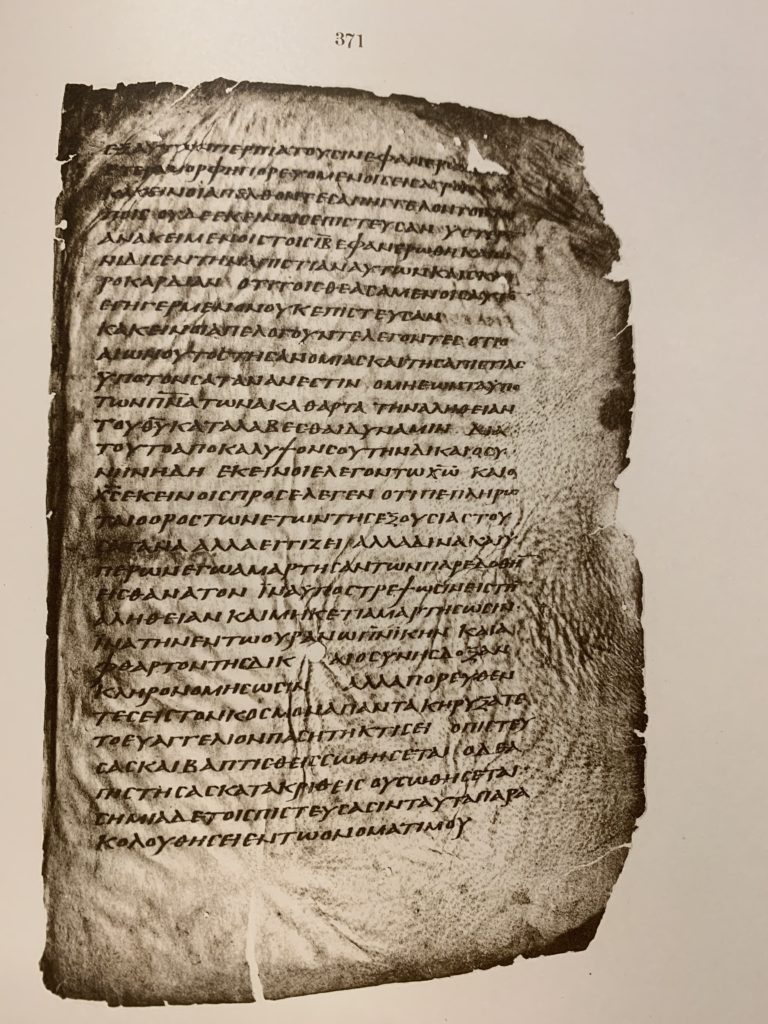 ΕΞΑΥΤΩΝΠΕΡΙΠΑΤΟΥϹΙΝΕΦΑΝΕΡΩ
ΕΤΕΡΑΜΟΡΦΗΠΟΡΕΥΟΜΕΝΟΙϹΕΙϹΑΓΡΟΝ
ΚΑΚΕΙΝΟΙΑΠΕΛΘΟΝΤΕϹΑΠΗΓΓΕΛΟΝΤΟΙϹΛΟΙ
ΠΟΙϹ ΟΥΔΕΕΚΕΙΝΟΙϹΕΠΙϹΤΕΥϹΑΝ ΥϹΤΕΡΟ
ΑΝΑΚΕΙΜΕΝΟΙϹΤΟΙϹΙΑ̅ΕΦΑΝΕΡΩΘΗΚΑΙΩ
ΝΙΔΙϹΕΝΤΗΝΑΠΙϹΤΙΑΝΑΥΤΩΝΚΑΙϹΚΛΗ
ΡΟΚΑΡΔΙΑΝ ΟΤΙΤΟΙϹΘΕΑϹΑΜΕΝΟΙϹΑΥΤΟ
ΕΓΗΓΕΡΜΕΝΟΝΟΥΚΕΠΙϹΤΕΥϹΑΝ
ΚΑΚΕΙΝΟΙΑΠΕΛΟΓΟΥΝΤΕΛΕΓΟΝΤΕϹΟΤΙΟ
ΑΙΩΝΟΥΤΟϹΤΗϹΑΝΟΜΙΑϹΚΑΙΤΗϹΑΠΙϹΤΙΑϹ
ΥΠΟΤΟΝϹΑΤΑΝΑΝΕϹΤΙΝ ΟΜΗΕΩΝΤΑΥΠΟ
ΤΩΝΠ̅Ν̅Α̅ΤΩΝΑΚΑΘΑΡΤΑ ΤΗΝΑΛΗΘΕΙΑΝ
ΤΟΥΘ̅Υ̅ΚΑΤΑΛΑΒΕϹΘΑΙΔΥΝΑΜΙΝ ΔΙΑ
ΤΟΥΤΟΑΠΟΚΑΛΥΨΟΝϹΟΥΤΗΝΔΙΚΑΙΟϹΥ
ΝΗΝΗΔΗ ΕΚΕΙΝΟΙΕΛΕΓΟΝΤΩΧ̅Ω̅ ΚΑΙΟ
Χ̅Ϲ̅ΕΚΕΙΝΟΙϹΠΡΟϹΕΛΕΓΕΝ ΟΤΙΠΕΠΛΗΡΩ
ΤΑΙΟΟΡΟϹΤΩΝΕΤΩΝΤΗϹΕΞΟΥϹΙΑϹΤΟΥ
ϹΑΤΑΝΑ ΑΛΛΑΕΓΓΙΖΕΙ ΑΛΛΑΔΙΝΑΚΑΙΥ
ΠΕΡΩΝΕΓΩΑΜΑΡΤΗϹΑΝΤΩΝΠΑΡΕΔΟΘΗ
ΕΙϹΘΑΝΑΤΟΝ ΙΝΑΥΠΟϹΤΡΕΨΩϹΙΝΕΙϹΤΗ
ΑΛΗΘΕΙΑΝ ΚΑΙΜΗΚΕΤΙΑΜΑΡΤΗϹΩϹΙΝ
ΙΝΑΤΗΝΕΝΤΩΟΥΡΑΝΩΠ̅Ν̅ΙΚΗΝ ΚΑΙΑ
ΦΘΑΡΤΟΝΤΗϹΔΙΚΑΙΟϹΥΝΗϹΔΟΞΑΝ
ΚΛΗΡΟΝΟΜΗϹΩϹΙΝ ΑΛΛΑΠΟΡΕΥΘΕΝ
ΤΕϹΕΙϹΤΟΝΚΟϹΜΟΝΑΠΑΝΤΑΚΗΡΥΞΑΤΕ
ΤΟΕΥΑΓΓΕΛΙΟΝΠΑϹΗΤΗΚΤΙϹΕΙ ΟΠΙϹΤΕΥ
ϹΑϹΚΑΙΒΑΠΤΙϹΘΕΙϹϹΩΘΗϹΕΤΑΙ ΟΔΕΑ
ΠΙϹΤΗϹΑϹΚΑΤΑΚΡΙΘΕΙϹ ΟΥϹΩΘΗϹΕΤΑΙ
ϹΗΜΙΑΔΕΤΟΙϹΠΙϹΤΕΥϹΑϹΙΝΤΑΥΤΑΠΑΡΑ
ΚΟΛΟΥΘΗϹΕΙΕΝΤΩΟΝΟΜΑΤΙΜΟΥ
371